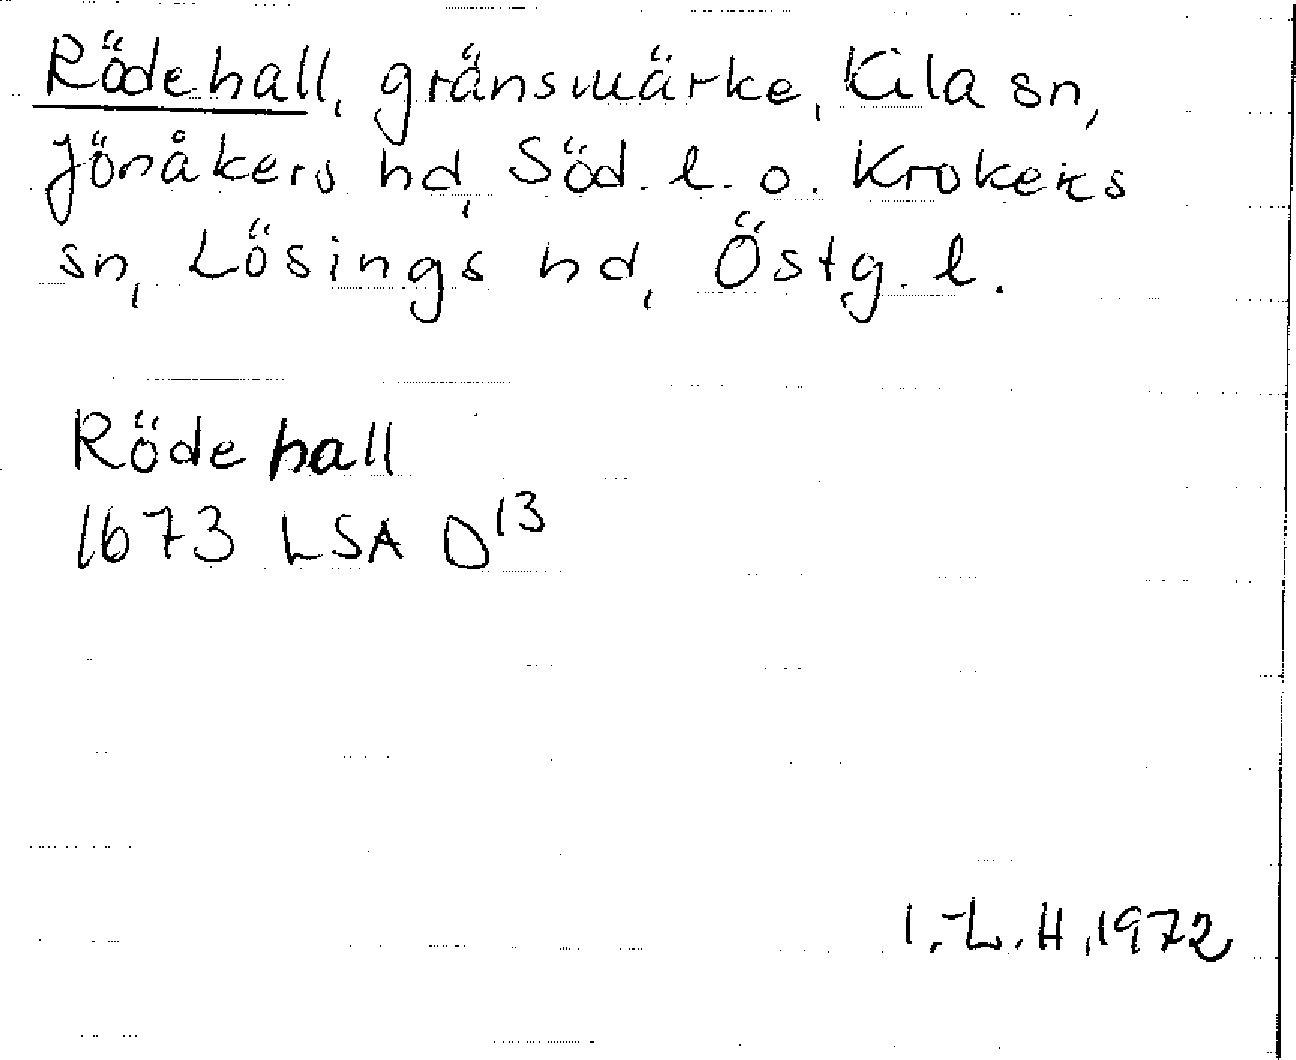 Rödehall, gränsmärke, Kila sn,
Jönåkers hd, Söd. l. o. Krokeks
sn, Lösings hd, Östg. l.
Röde hall
1673 LSA D¹³
I.-L.H, 1972